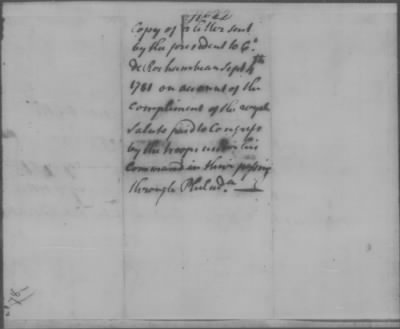 No 22
Copy of a letter sent
by the president to Ct
de Rochambeau Sept 4th
1781 on account of the
compliment of the royal
salute paid to Congress
by the troops under his
command in their passing
through Philada
78